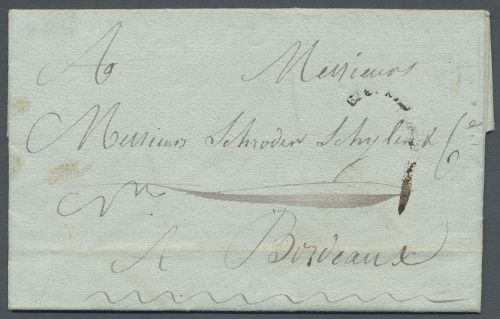 A Messieurs
Messieurs Schroder Schyler & Cie
A Bordeaux